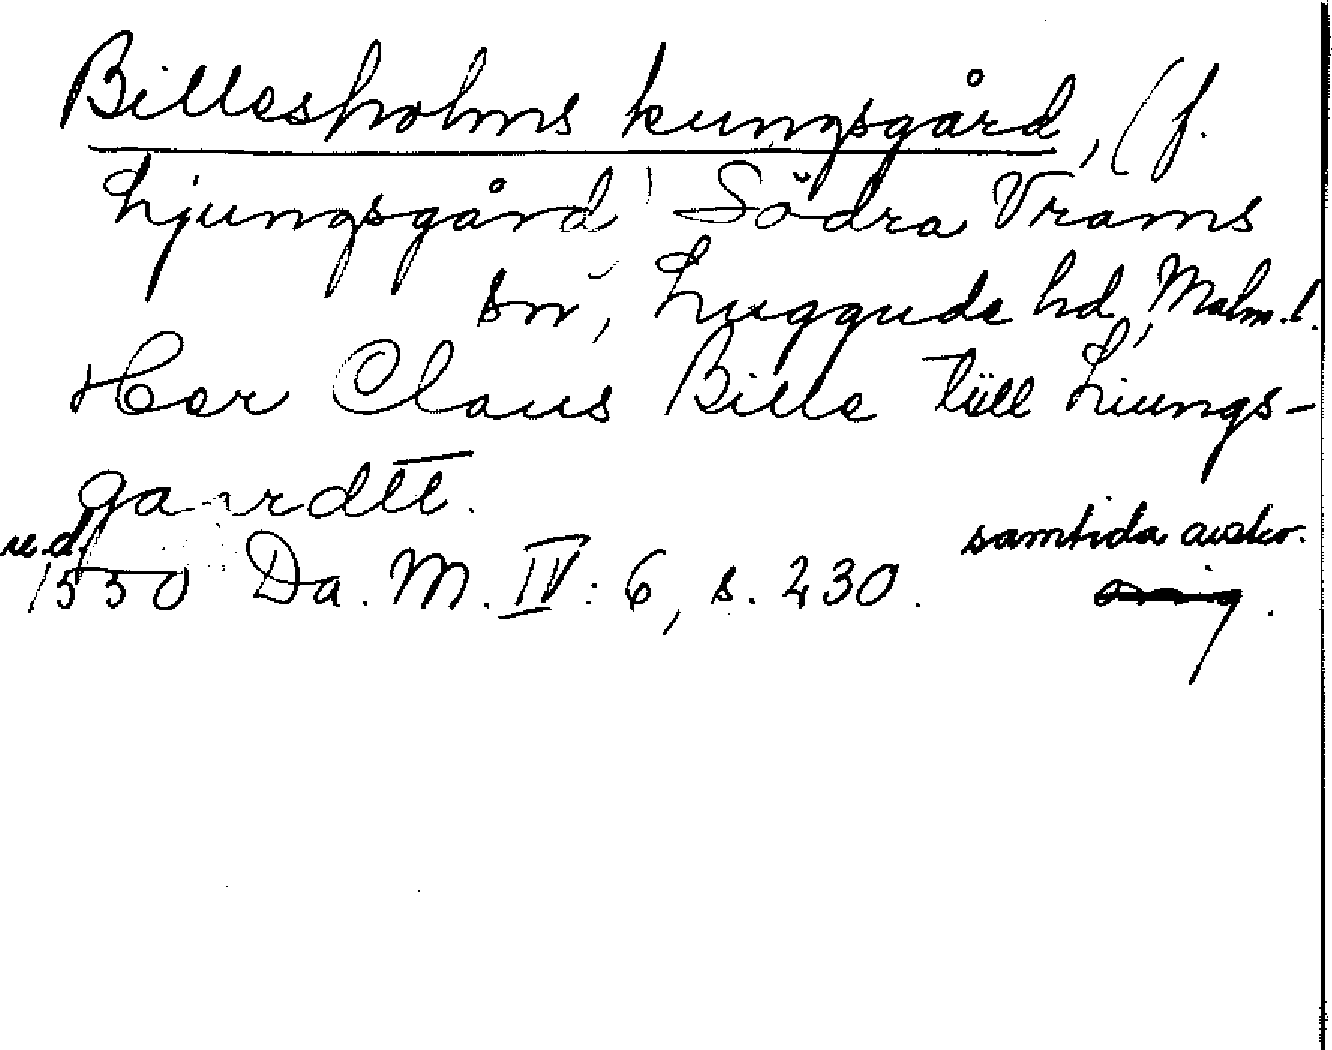 Billesholms kungsgård, (f.
Ljungsgård) Södra Vrams
sn, Luggude hd, Malm. l.
Her Claus Bille tüll Liungs-
gaardtt.
u.d. samtida avskr.
1550 Da. M. IV: 6, s. 230.